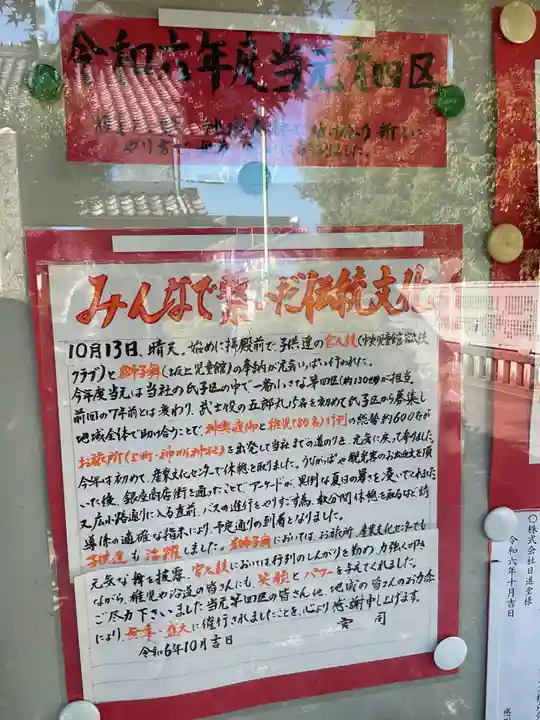 令和六年度当元第四区
みんなで繋いだ伝統文化
10月13日、晴天。始めに拝殿前で、子供達の宮太鼓(中央児童館宮太鼓
クラブ)と獅子舞(坂上児童館)の奉納が元気いっぱい行われた。
今年度当元は当社の氏子区の中で一番小さな第四区(約130世帯)が担当。
前回の7年前とは変わり、武士役の五郎丸15名を初めて氏子区から募集し
地域全体で助け合うことで、神輿渡御と稚児(80名)行列の総勢約600名が
お旅所(上町・神明神社)を出発して当社までの道のりを、元気に戻って参りました。
今年は初めて、産業文化センターで休憩を取りました。うながっぱや観光客のお出迎えを頂
いた後、銀座商店街を通ったことで、アーケードが異例な夏日の暑さを凌いでくれました
又広小路通りに入る直前、バスの進行をやりすごす為、数分間休憩を取るなど誘
導係の適確な指示により、予定通りの到着となりました。
子供達も活躍しました。獅子舞においては、お旅所、産業文化センターでも
元気な舞を披露。宮太鼓においては、行列のしんがりを勤め、力強く叩き
ながら、稚児や沿道の皆さんにも、笑顔とパワーを与えてくれました。
ご尽力下さいました当元第四区の皆さん他、地域の皆さんのお力添
により、無事・盛大に催行されましたことを、心より感謝申し上げます。
令和6年10月吉日
宮司
〇株式会社日進堂様
令和六年十月吉日